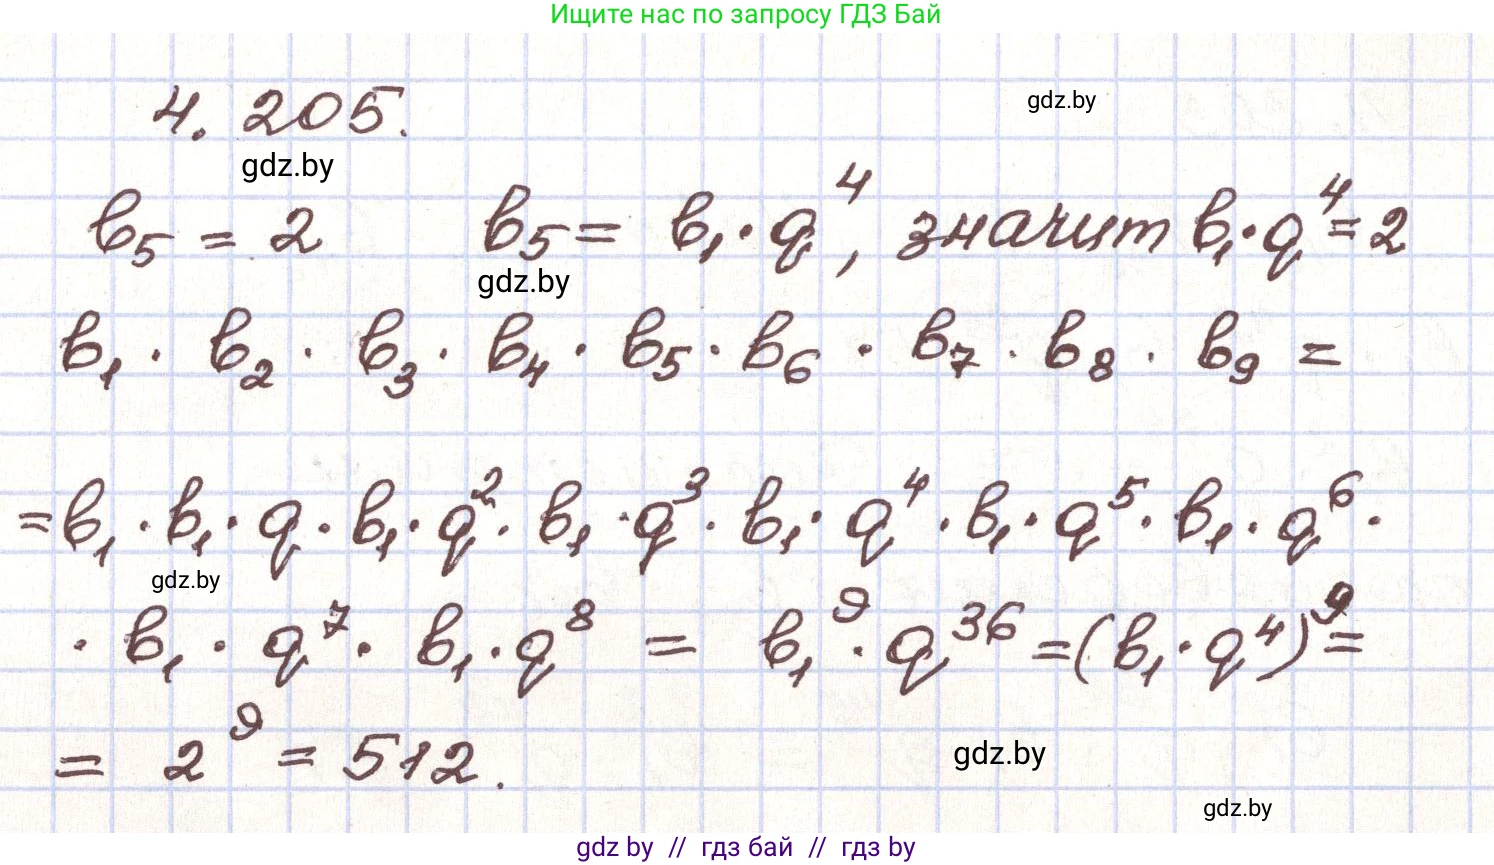 Ищите нас по запросу ГДЗ Бай
4.205.
gdz.by
gdz.by
b₅ = 2 b₅ = b₁ · q⁴, значит b₁ · q⁴ = 2
gdz.by
b₁ · b₂ · b₃ · b₄ · b₅ · b₆ · b₇ · b₈ · b₉ =
= b₁ · b₁ · q · b₁ · q² · b₁ · q³ · b₁ · q⁴ · b₁ · q⁵ · b₁ · q⁶ ·
gdz.by
· b₁ · q⁷ · b₁ · q⁸ = b₁⁹ · q³⁶ = (b₁ · q⁴)⁹ =
= 2⁹ = 512.
gdz.by
gdz.by
gdz by // гдз бай // гдз by